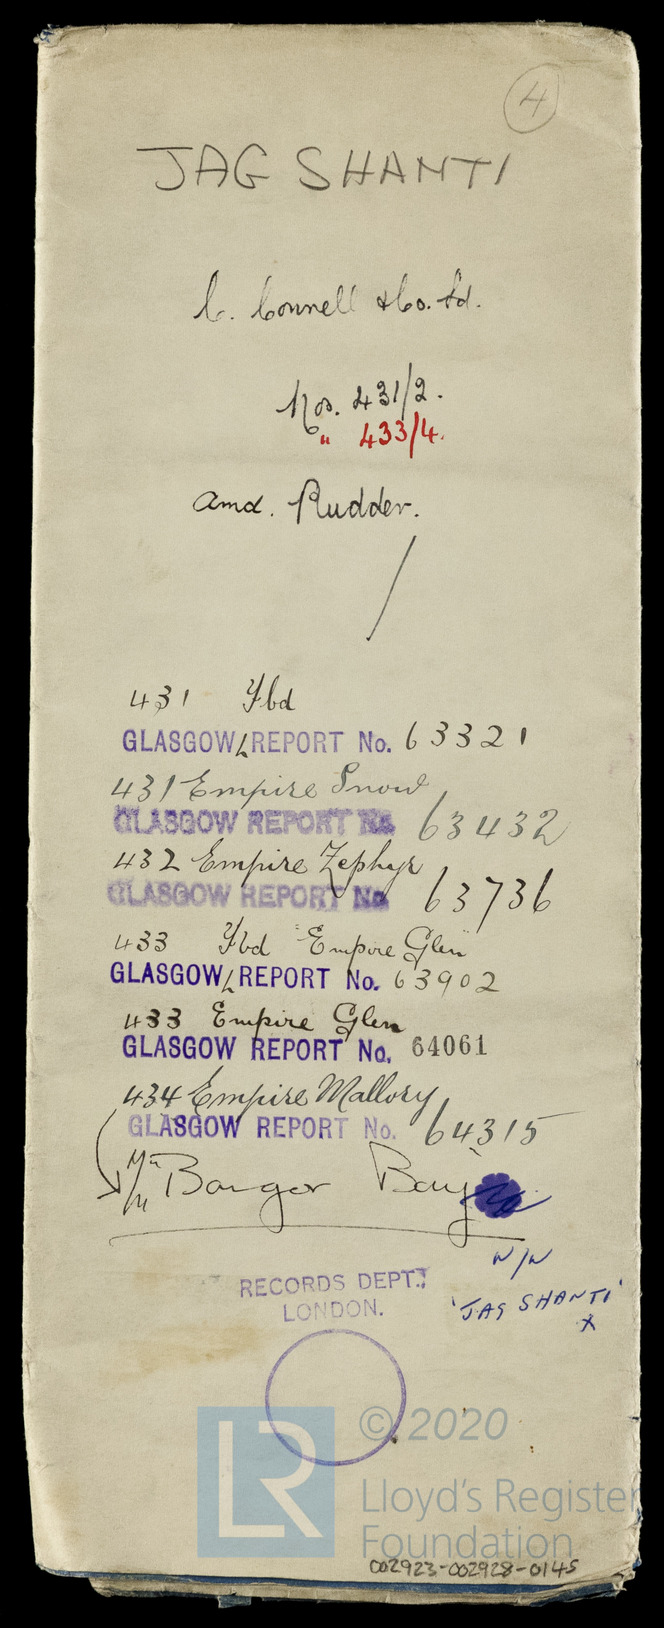 4
JAG SHANTI
C. Connell & Co. Ld.
Nos. 431/2.
" 433/4.
Amd. Rudder.
431 Fbd
GLASGOW REPORT No. 63321
431 Empire Snow
GLASGOW REPORT No. 63432
432 Empire Zephyr
GLASGOW REPORT No. 63736
433 Fbd Empire Glen
GLASGOW REPORT No. 63902
433 Empire Glen
GLASGOW REPORT No. 64061
434 Empire Mallory
GLASGOW REPORT No. 64315
Bangor Bay
N/N
'JAG SHANTI'
RECORDS DEPT.
LONDON.
LR
© 2020
Lloyd's Register
Foundation
002923-002928-0145